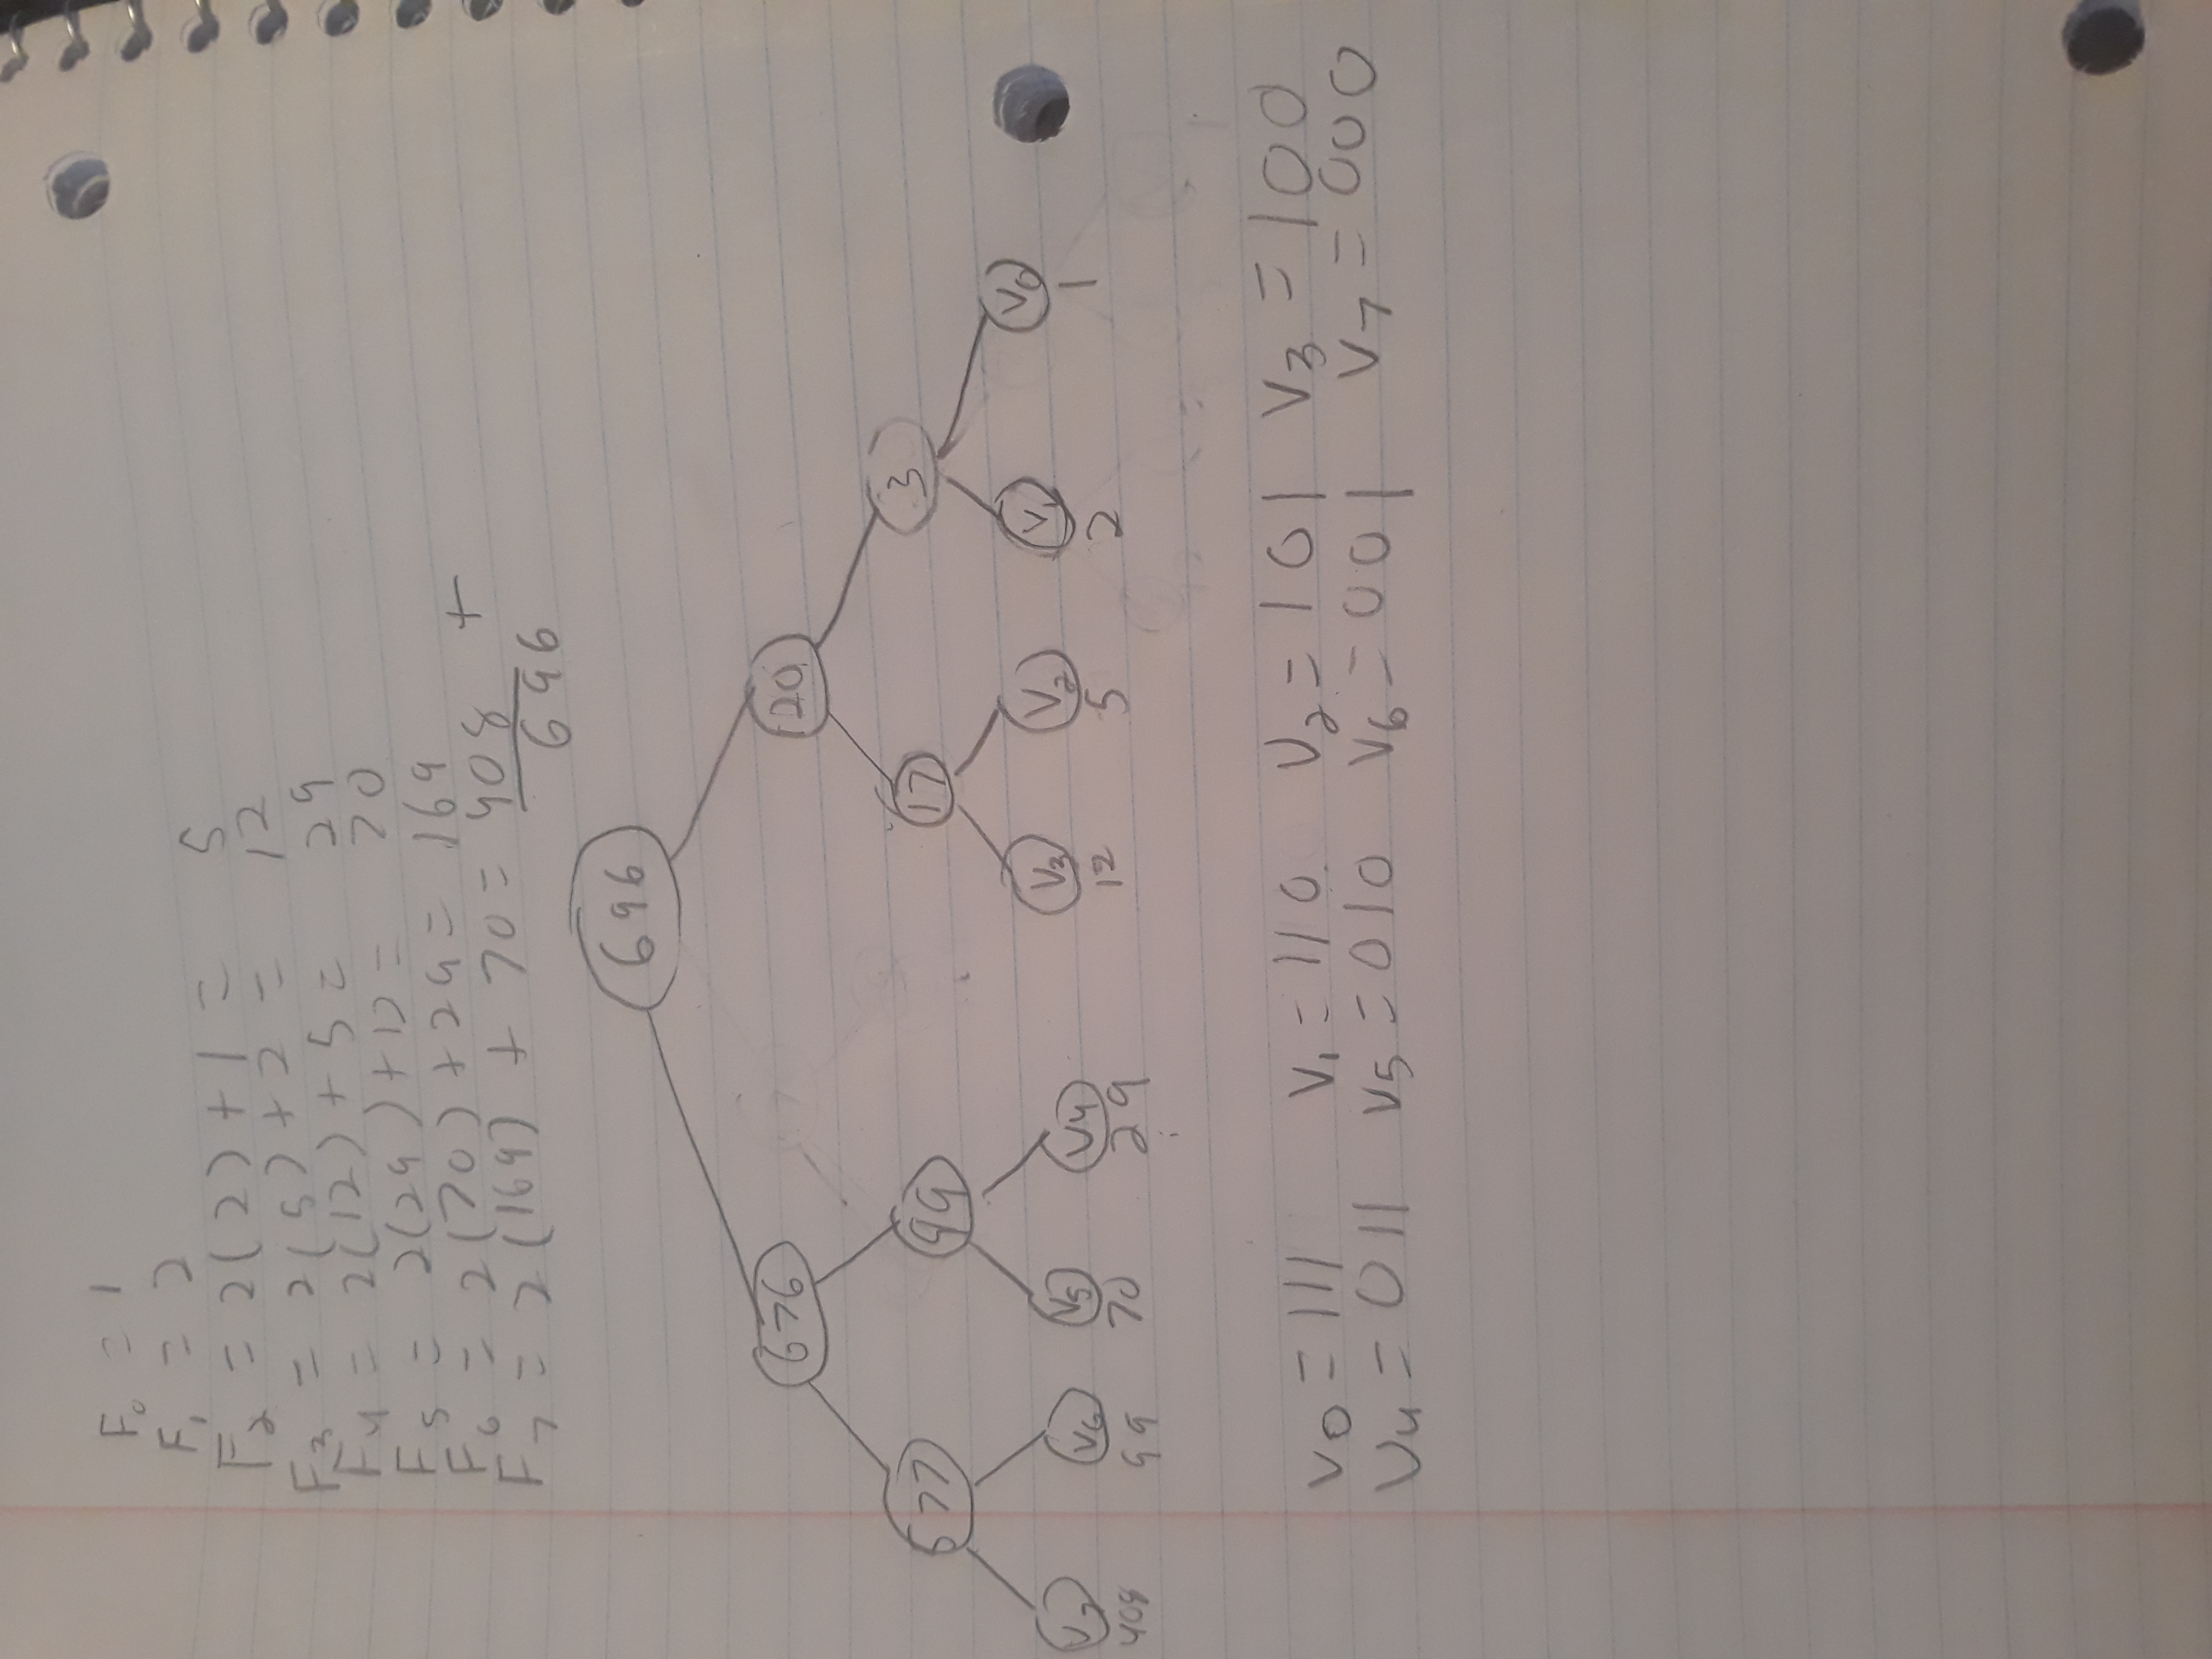 F₀ = 1
F₁ = 2
F₂ = 2(2) + 1 = 5
F₃ = 2(5) + 2 = 12
F₄ = 2(12) + 5 = 29
F₅ = 2(29) + 12 = 70
F₆ = 2(70) + 29 = 169
F₇ = 2(169) + 70 = 408 +
696
696
676 20
577 99 17 3
V₇ V₆ V₅ V₄ V₃ V₂ V₁ V₀
408 99 70 29 12 5 2 1
V₀ = 111 V₁ = 110 V₂ = 101 V₃ = 100
V₄ = 011 V₅ = 010 V₆ = 001 V₇ = 000